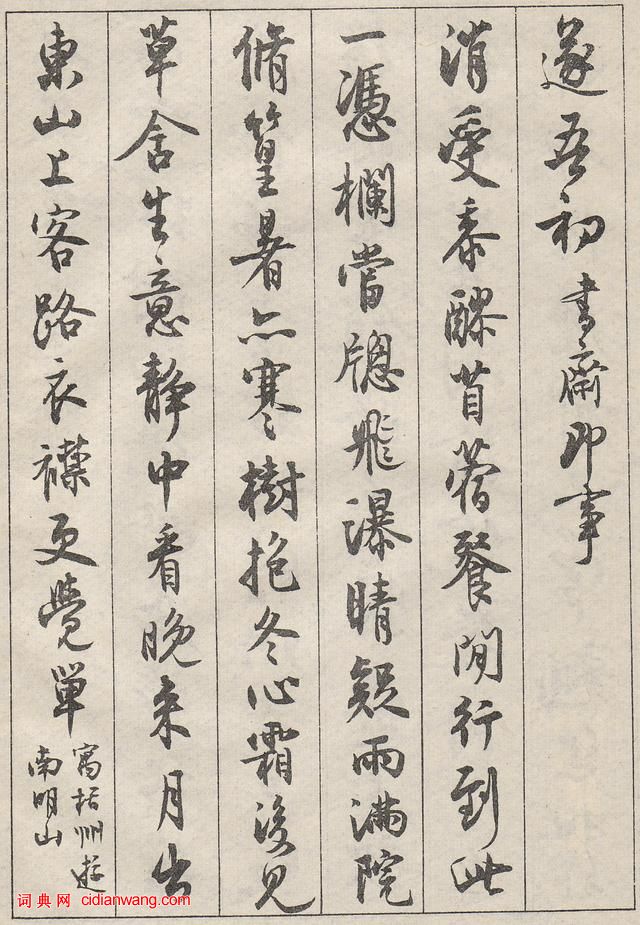 遂吾初 書齋即事
消受黍醪苜蓿餐閒行到此
一憑欄當牕飛瀑晴疑雨滿院
脩篁暑亦寒樹抱冬心霜後見
草含生意靜中看晚來月出
東山上客路衣襟更覺單 寓括州遊
南明山
词典网 cidianwang.com